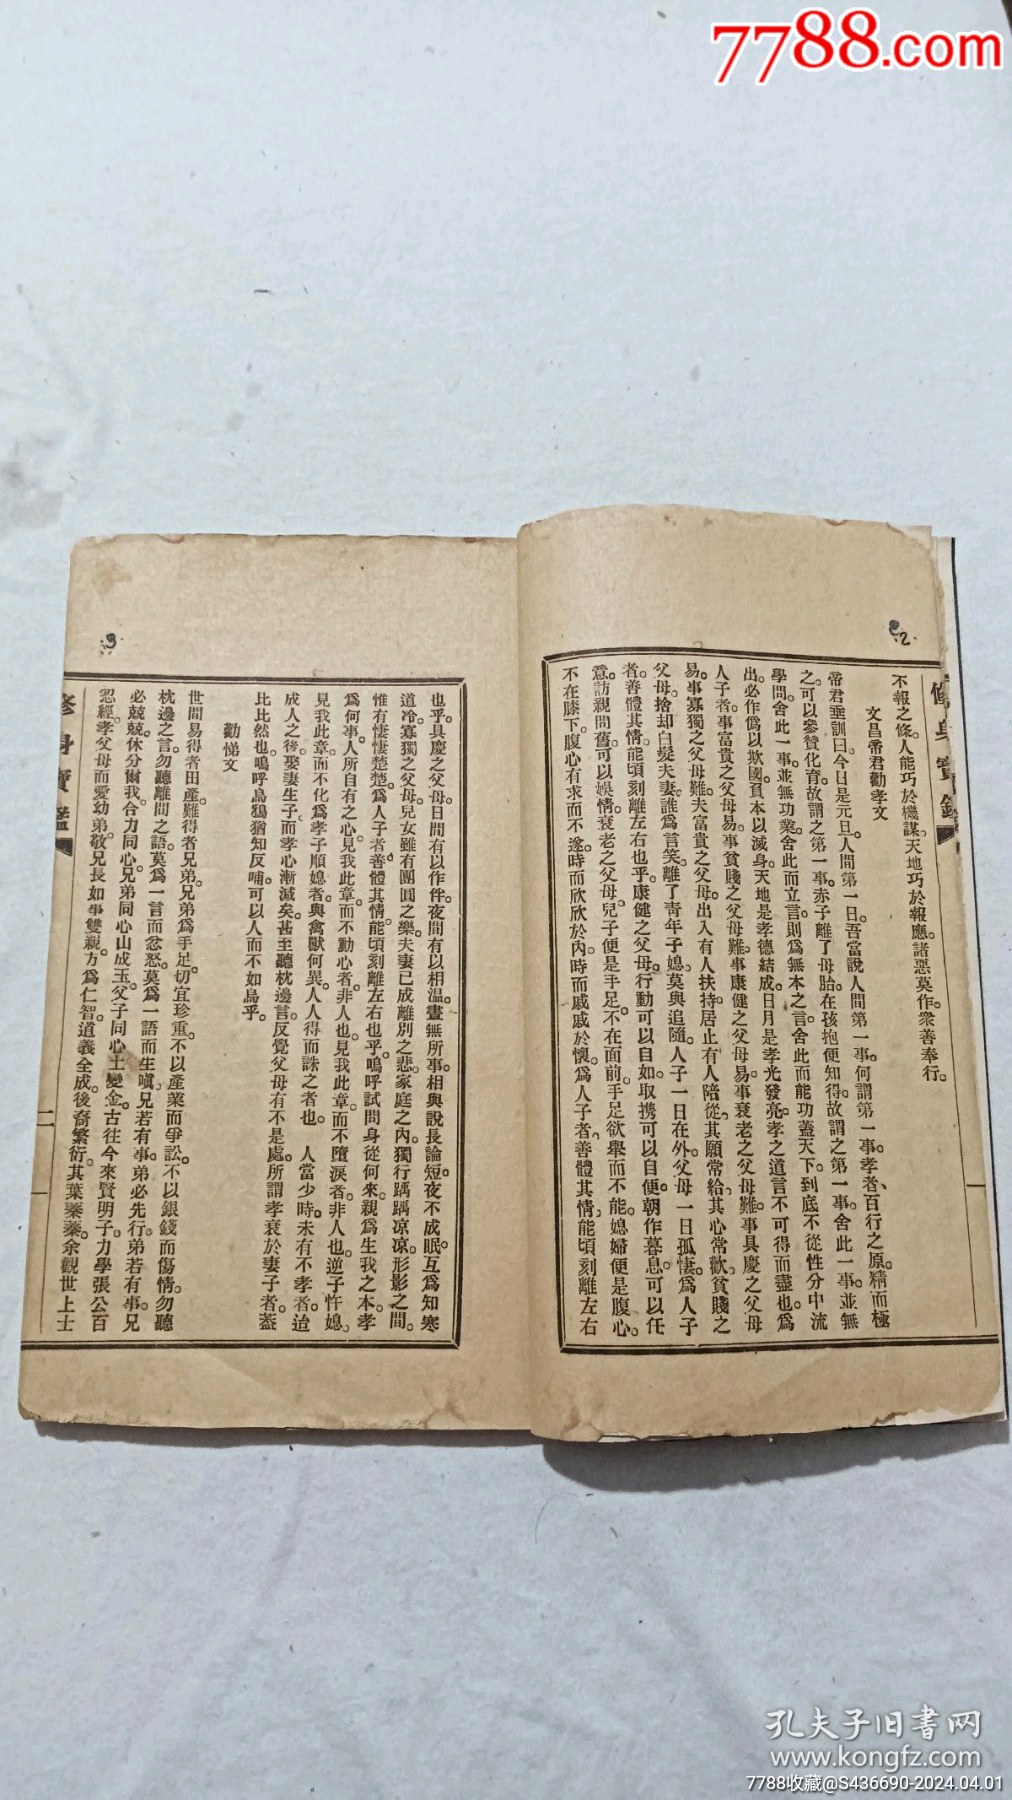 7788.com
2
修身寶鑑
不報之條。人能巧於機謀。天地巧於報應。諸惡莫作。衆善奉行。
文昌帝君勸孝文
帝君垂訓曰。今日是元旦。人間第一日。吾當說人間第一事。何謂第一事。孝者、百行之原。精而極
之。可以參贊化育。故謂之第一事。赤子離了母胎。在孩抱便知得。故謂之第一事。舍此一事。並無
學問。舍此一事。並無功業。舍此而立言。則爲無本之言。舍此而能功蓋天下。到底不從性分中流
出。必作僞以欺國。資本以滅身。天地是孝德結成。日月是孝光發亮。孝之道。言不可得而盡也。爲
人子者。事富貴之父母易。事貧賤之父母難。事康健之父母易。事衰老之父母難。事具慶之父母
易。事寡獨之父母難。夫富貴之父母。出入有人扶持。居止有人陪從。其願常給。其心常歡。貧賤之
父母。捨却白髮夫妻。誰爲言笑。離了青年子媳。莫與追隨。人子一日在外。父母一日孤悽。爲人子
者。善體其情。能頃刻離左右也乎。康健之父母。行動可以自如。取携可以自便。朝作暮息。可以任
意。訪親問舊。可以娛情。衰老之父母。兒子便是手足。不在面前。手足欲舉而不能。媳婦便是腹心。
不在膝下。腹心有求而不遂。時而欣欣於內。時而戚戚於懷。爲人子者、善體其情、能頃刻離左右
一
3
也乎。具慶之父母。日間有以作伴。夜間有以相溫。晝無所事。相與說長論短。夜不成眠。互爲知寒
道冷。寡獨之父母。兒女雖有團圓之樂。夫妻已成離別之悲。家庭之內。獨行踽踽凉凉。形影之間。
惟有悽悽楚楚。爲人子者。善體其情。能頃刻離左右也乎。嗚呼。試問身從何來。親爲生我之本。孝
爲何事。人所自有之心。見我此章。而不動心者。非人也。見我此章。而不墮淚者。非人也。逆子忤媳、
見我此章。而不化爲孝子順媳者。與禽獸何異。人人得而誅之者也。　人當少時。未有不孝者。迨
成人之後。娶妻生子。而孝心漸滅矣。甚至聽枕邊言。反覺父母有不是處。所謂孝衰於妻子者。葢
比比然也。嗚呼。烏鴉猶知反哺。可以人而不如鳥乎。
勸悌文
世間易得者田產。難得者兄弟。兄弟爲手足。切宜珍重。不以產業而爭訟。不以銀錢而傷情。勿聽
枕邊之言。勿聽離間之語。莫爲一言而忿怒。莫爲一語而生嗔。兄若有事。弟必先行。弟若有事。兄
必兢兢。休分爾我。合力同心。兄弟同心山成玉。父子同心土變金。古往今來賢明子。力學張公百
忍經。孝父母而愛幼弟。敬兄長如事雙親。方爲仁智。道義全成。後裔繁衍。其葉蓁蓁。余觀世上士
修身寶鑑
二
孔夫子旧書网
www.kongfz.com
7788收藏@S436690-2024.04.01